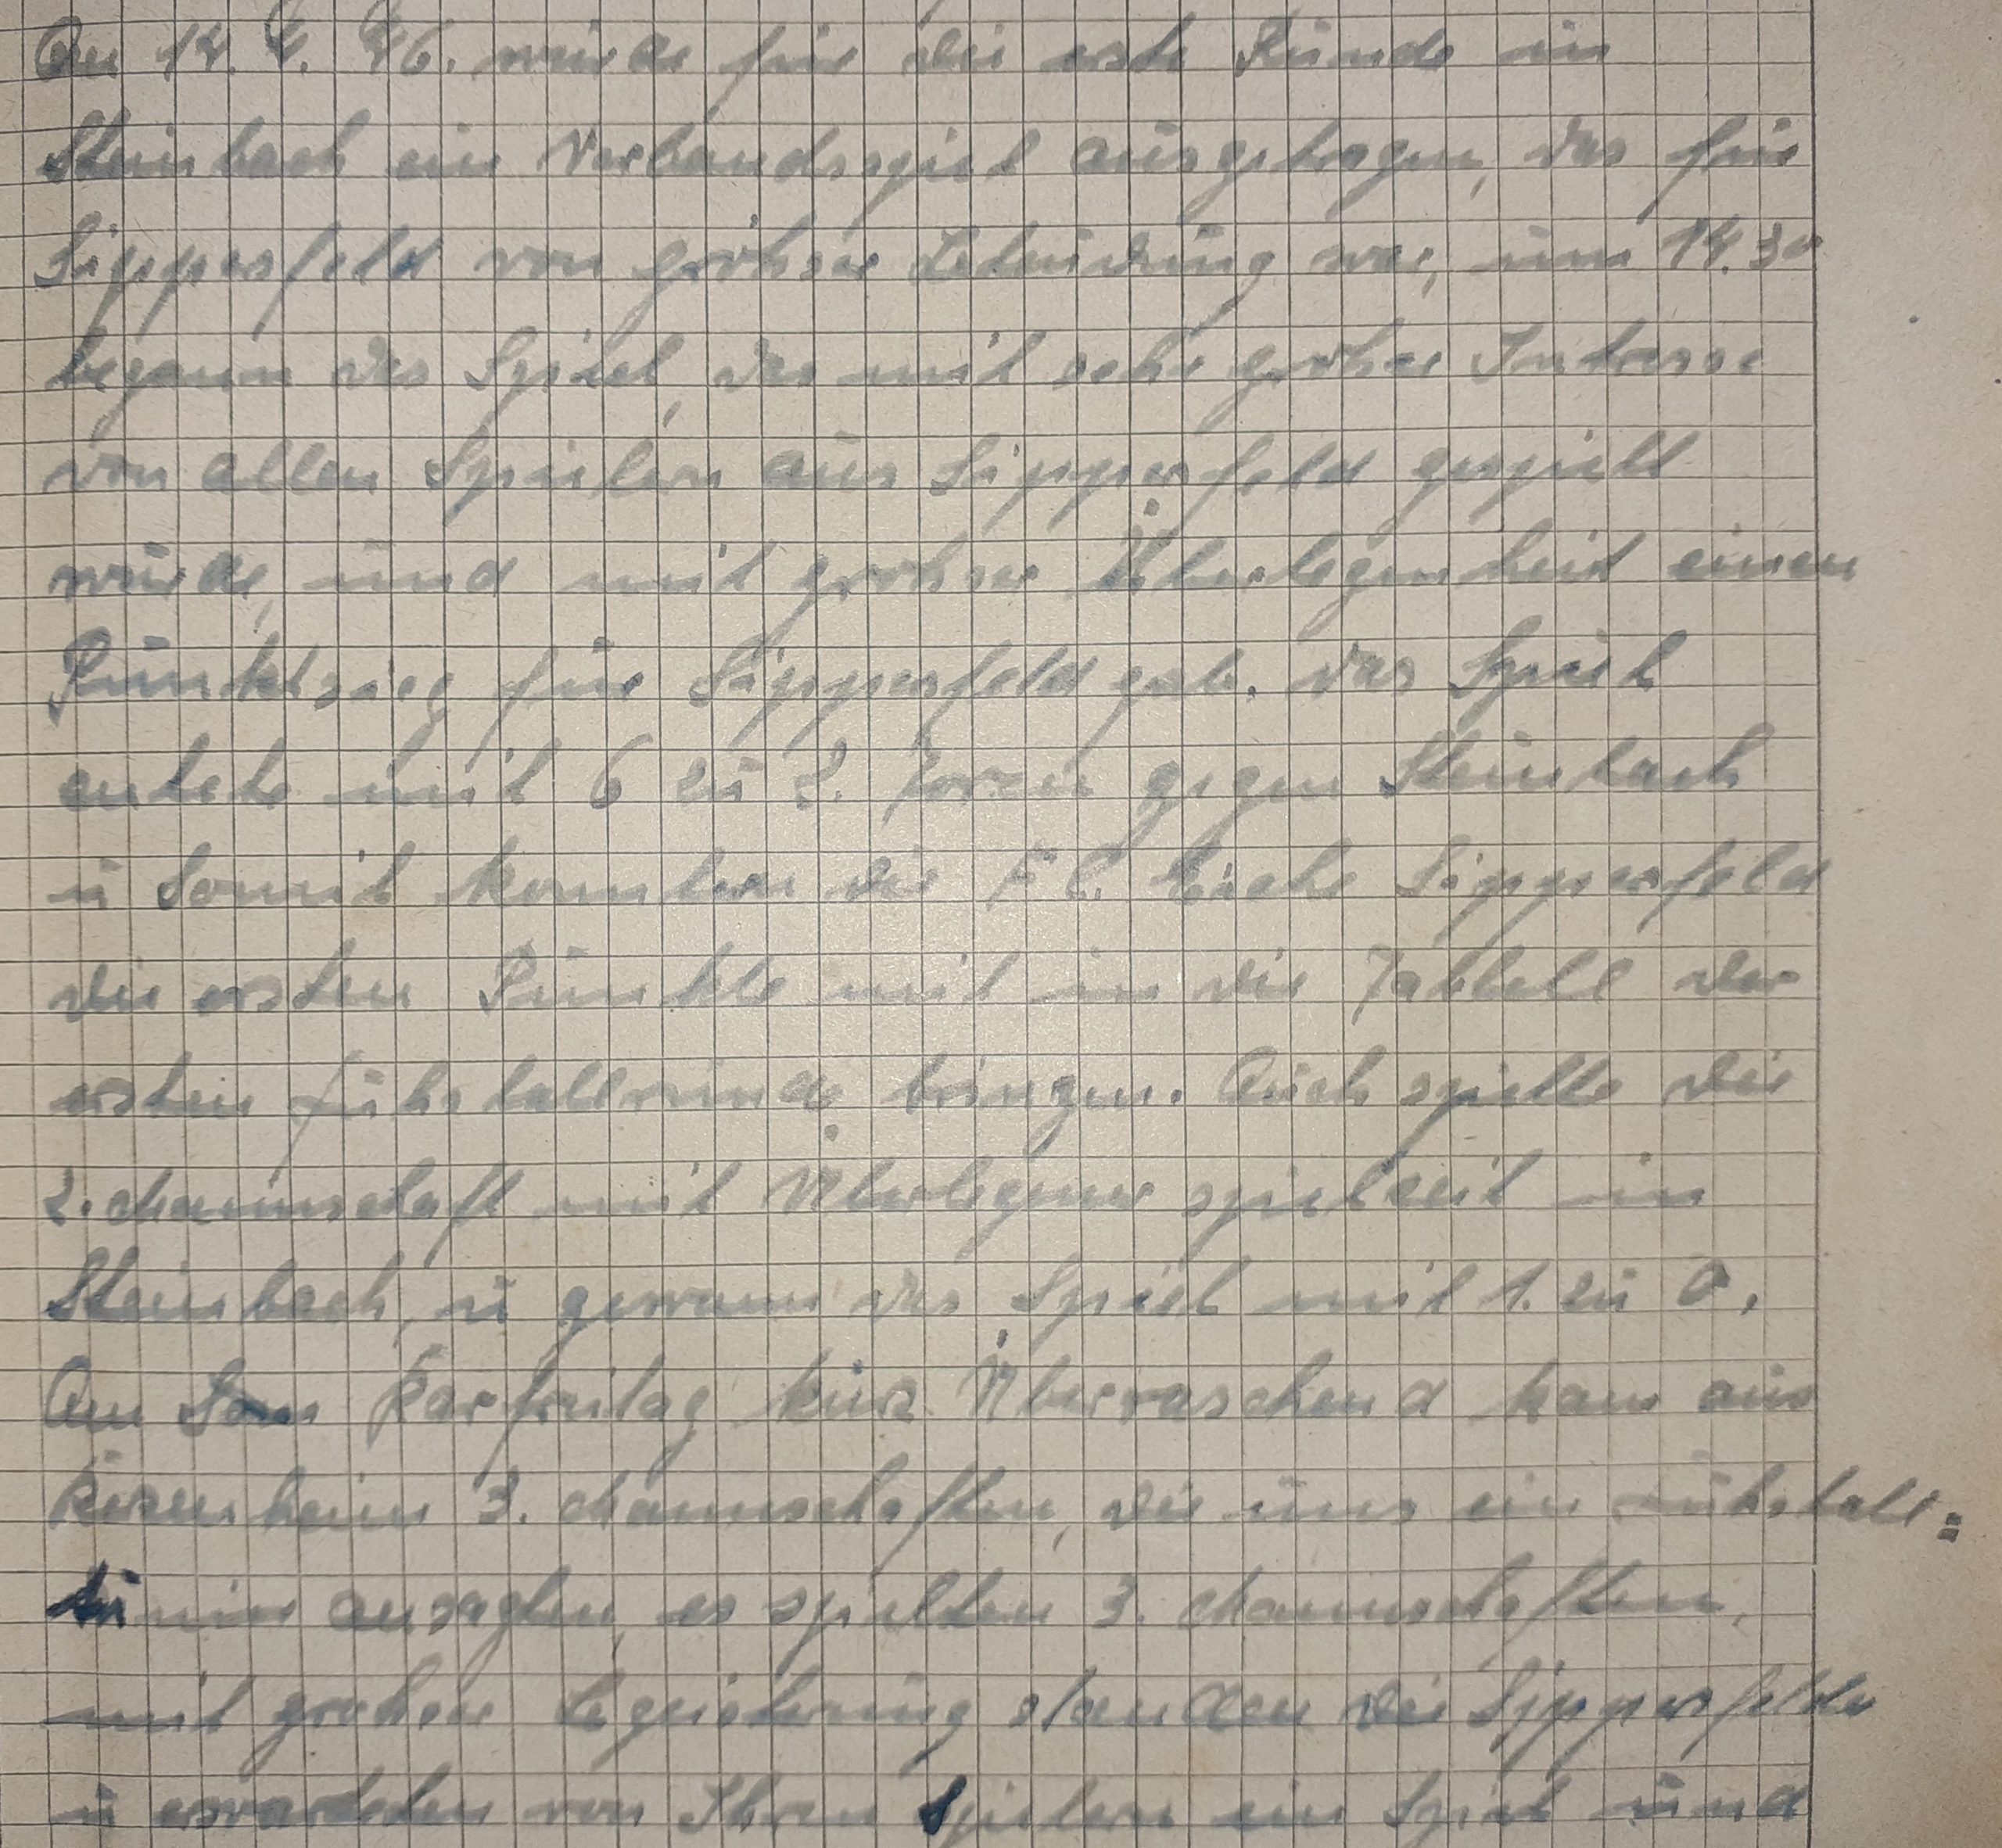 Am 14. 4. 46. wurde für die erste Runde in
Steinbach ein Verbandsspiel ausgetragen, das für
Sippersfeld von großer Bedeutung war, um 14.30
begann das Spiel, das mit sehr großer Interesse
von allen Spielern aus Sippersfeld gespielt
wurde, und mit großer Überlegenheit einen
Punktsieg für Sippersfeld gab. das Spiel
entete mit 6 zu 2. Toren gegen Steinbach
u Somit konnten die F C. Eiche Sippersfeld
die ersten Punkte mit in die Tabbell der
ersten fußballrunde bringen. Auch spielte die
2. Mannschaft mit Überlegener spielzeit in
Steinbach, u gewann das Spiel mit 1. zu 0.
Am Karfreitag kurz Überraschend kam aus
3. Mannschaften, die uns ein fußball=
ansagten, es spielten 3. Mannschaften,
mit großer Begeisterung standen die Sippersfelder
u erwarteten von Ihren Spielern ein Spiel und